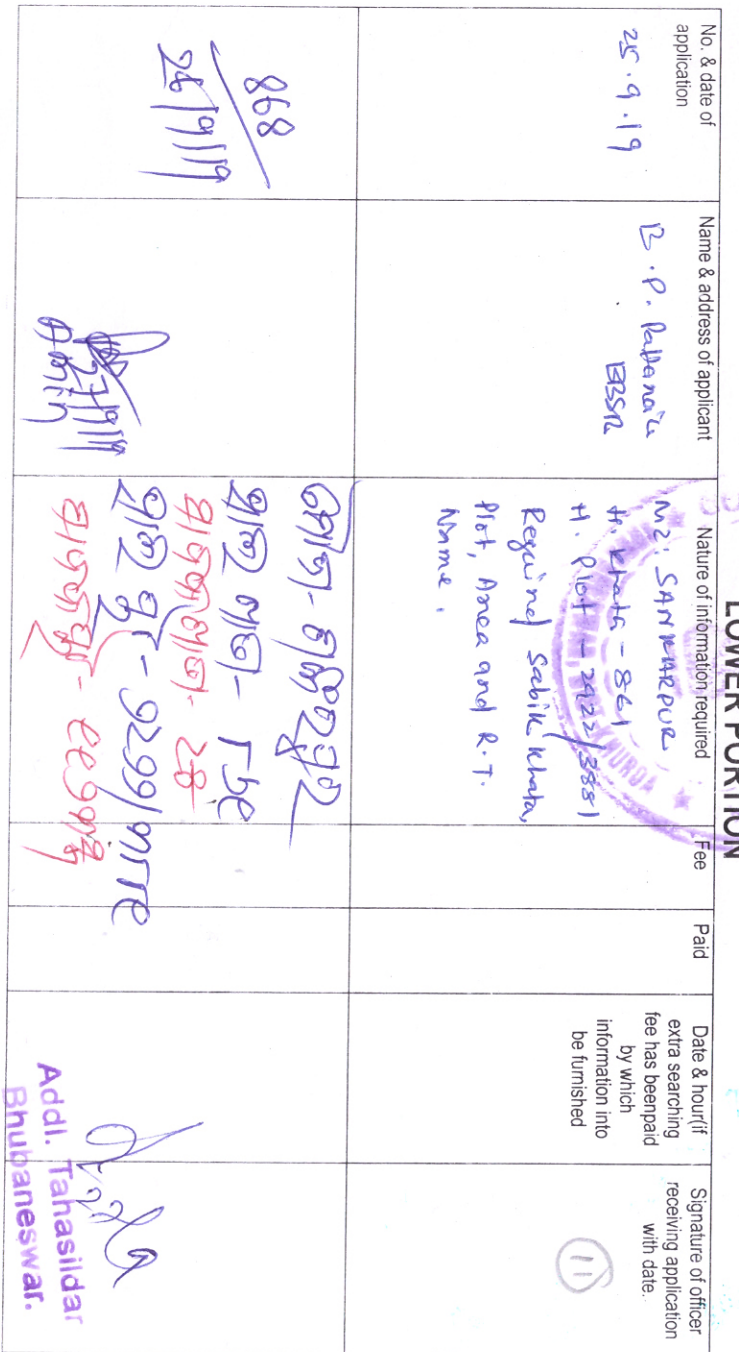 LOWER PORTION
No. & date of application
Name & address of applicant
Nature of information required
Fee
Paid
Date & hour(if extra searching fee has beenpaid by which information into be furnished
Signature of officer receiving application with date.
25.9.19
B.P. Pattanaik
BBSR
Mz: SANKARPUR
H. Khata - 861
H. Plot - 2922/3881
Required Sabik Khata,
Plot, Area and R.T.
Name.
11
868
26/9/19
27/9/19
Amin
ମୌଜା-
ହାଲ ଖାତା-
ସାବକ ଖାତା- 28
ହାଲ ପ୍ଲଟ-
KHURDA
Addl. Tahasildar
Bhubaneswar.